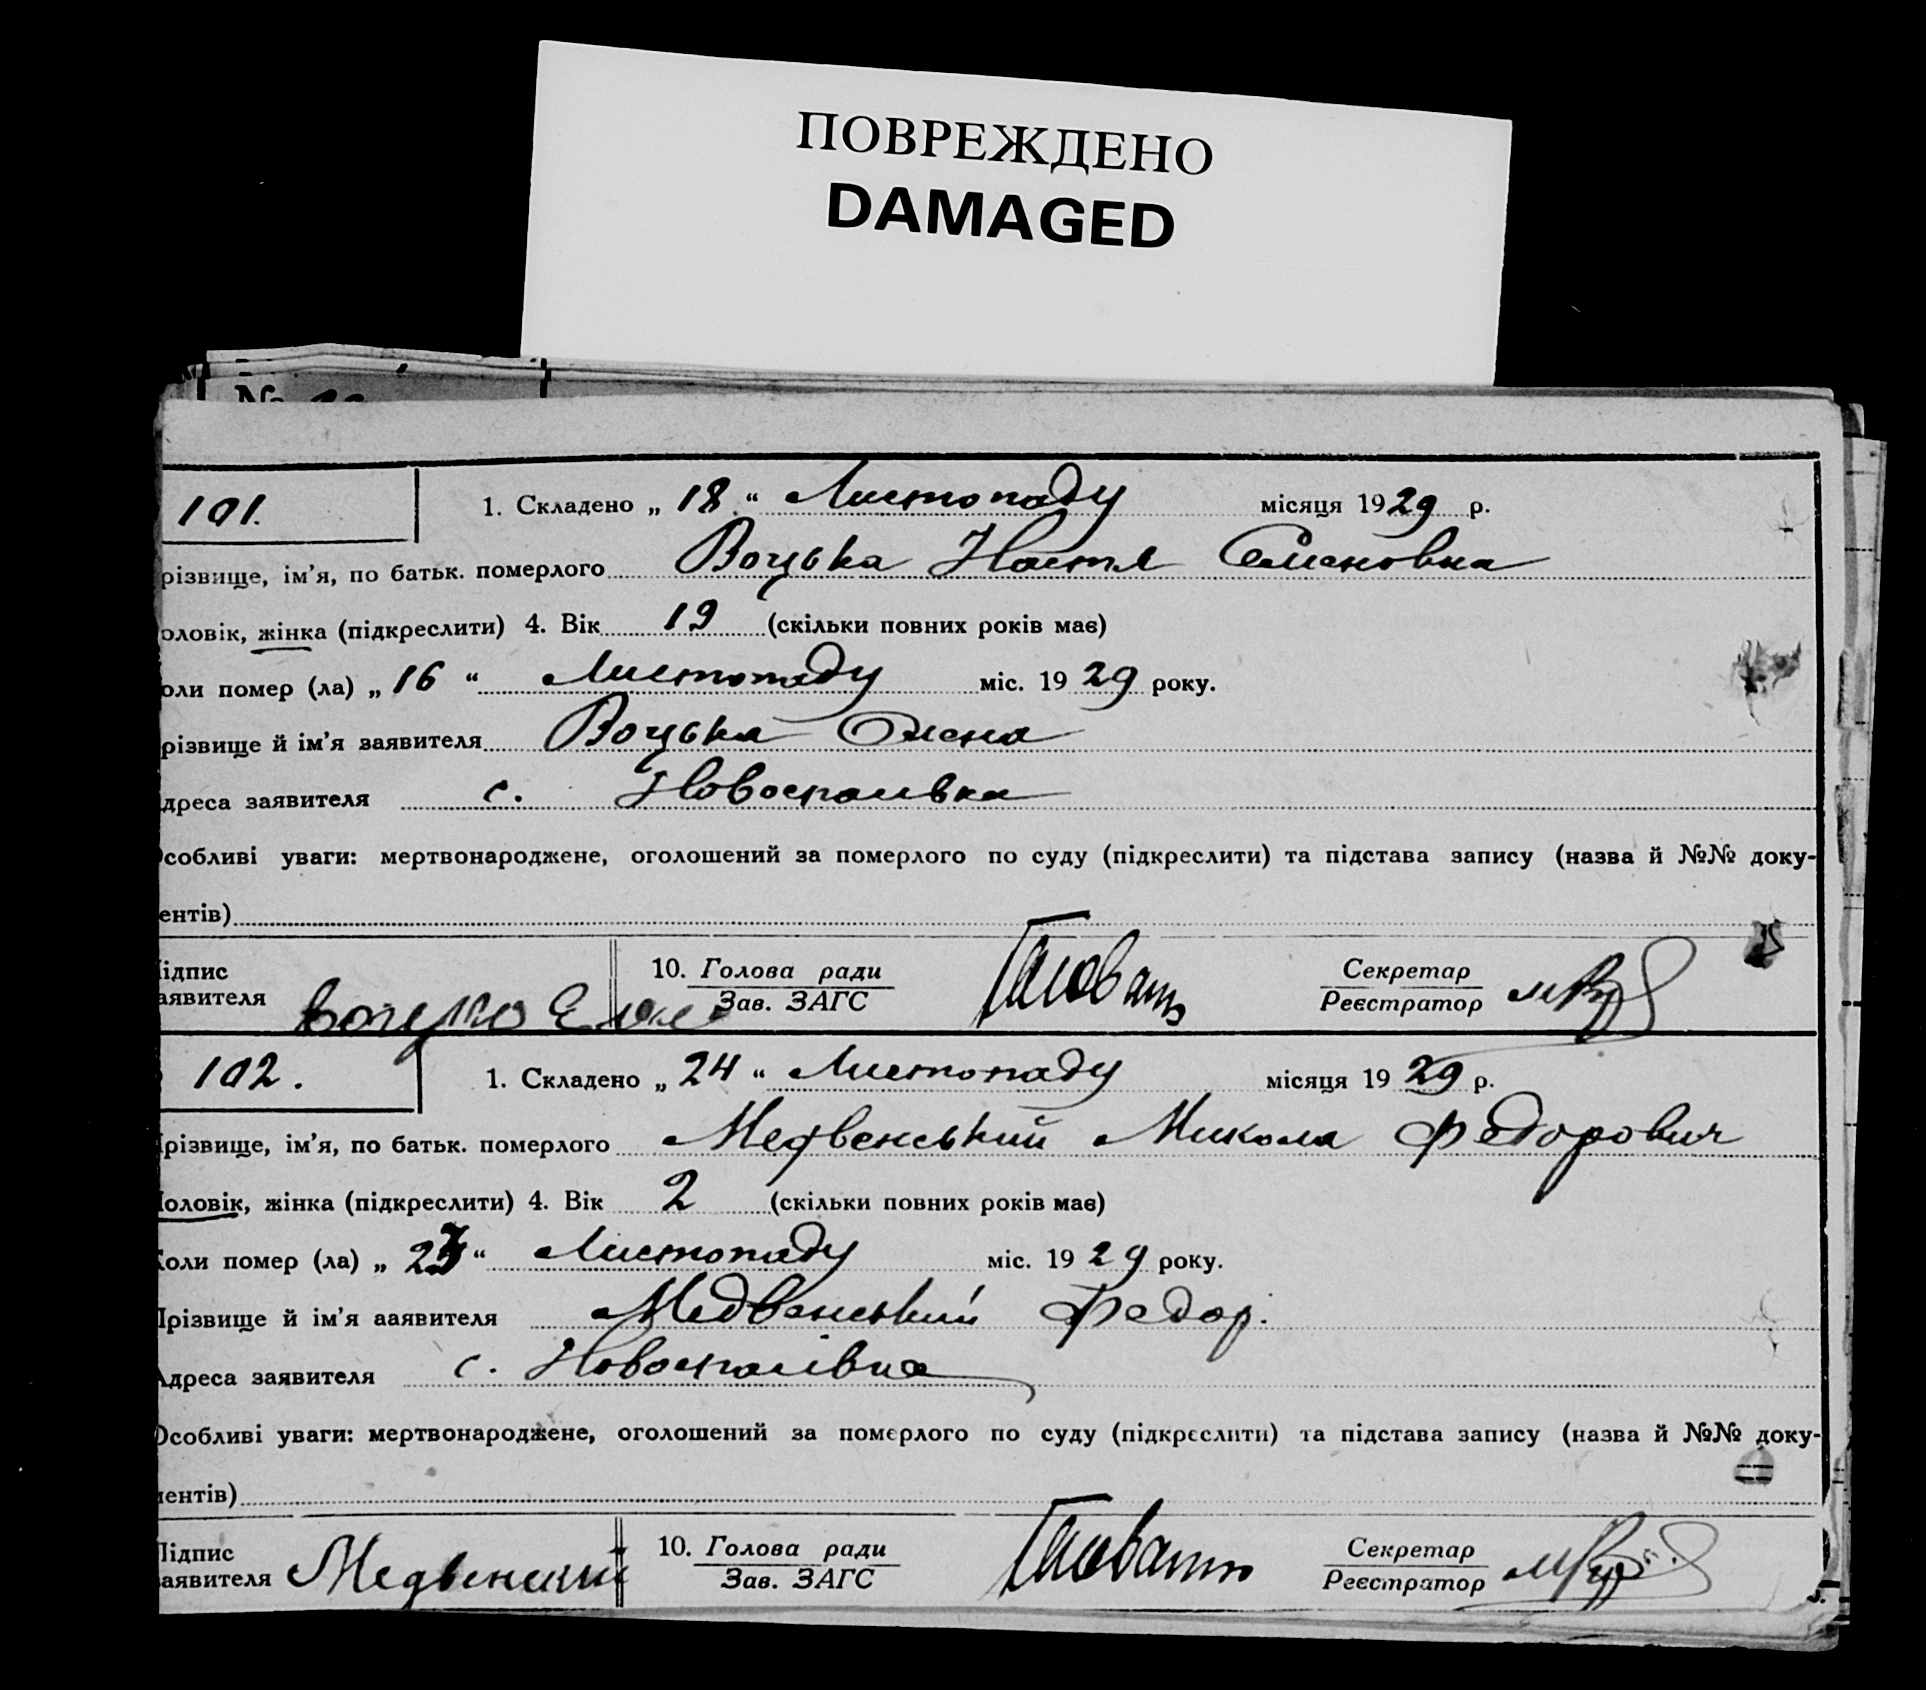 ПОВРЕЖДЕНО
DAMAGED
№
101. 1. Складено „ 18 “ Листопаду місяця 1929 р.
різвище, ім’я, по батьк. померлого Воцька Настя Семеновна
оловік, жінка (підкреслити) 4. Вік 19 (скільки повних років має)
оли помер (ла) „ 16 “ Листопаду міс. 1929 року.
різвище й ім’я заявителя Воцька Олена
дреса заявителя с. Новоспаивка
собливі уваги: мертвонароджене, оголошений за померлого по суду (підкреслити) та підстава запису (назва й №№ доку-
ентів)
ідпис
аявителя 10. Голова ради
Зав. ЗАГС Секретар
Реєстратор
102. 1. Складено „ 24 “ Листопаду місяця 1929 р.
різвище, ім’я, по батьк. померлого Медвенський Микола Федорович
оловік, жінка (підкреслити) 4. Вік 2 (скільки повних років має)
оли помер (ла) „ 23 “ Листопаду міс. 1929 року.
Прізвище й ім’я ааявителя Медвенський Федор.
Адреса заявителя с. Новоспаівка
Особливі уваги: мертвонароджене, оголошений за померлого по суду (підкреслити) та підстава запису (назва й №№ доку-
ентів)
Підпис
аявителя Медвенский 10. Голова ради
Зав. ЗАГС Секретар
Реєстратор